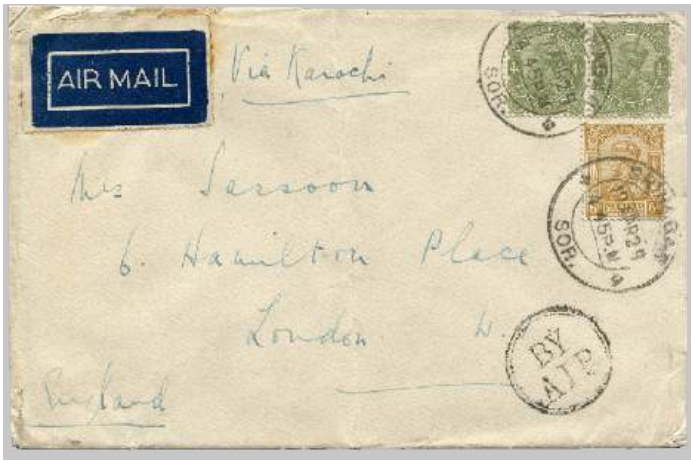 AIR MAIL
Via Karachi
Mrs Sassoon
6. Hamilton Place
London W.
England
BY
AIR
SOR.
SOR.